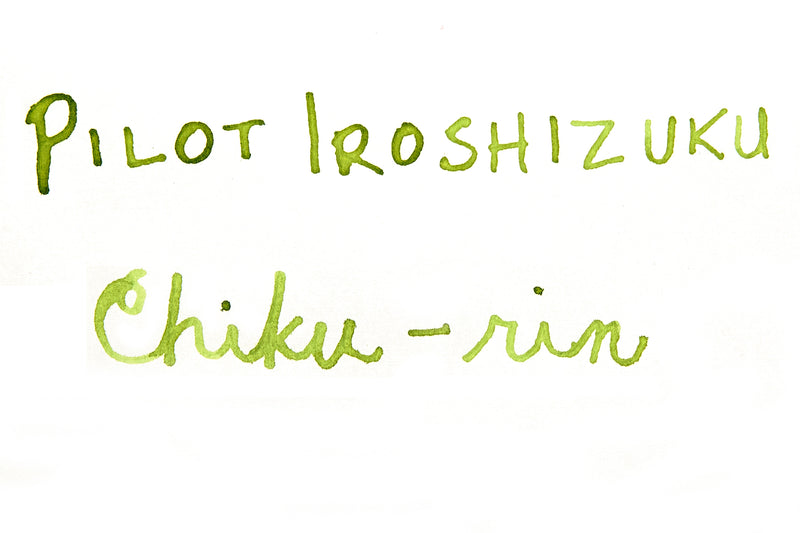 PILOT IROSHIZUKU
Chiku-rin